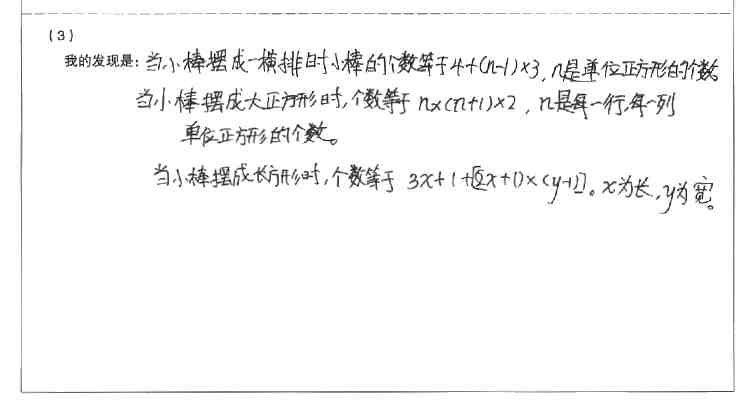 (3)
我的发现是:当小棒摆成一横排时小棒的个数等于4+(n-1)×3,n是单位正方形的个数。
当小棒摆成大正方形时,个数等于 n×(n+1)×2,n是每一行,每一列
单位正方形的个数。
当小棒摆成长方形时,个数等于 3x+1+[(2x+1)×(y-1)]。x为长,y为宽。